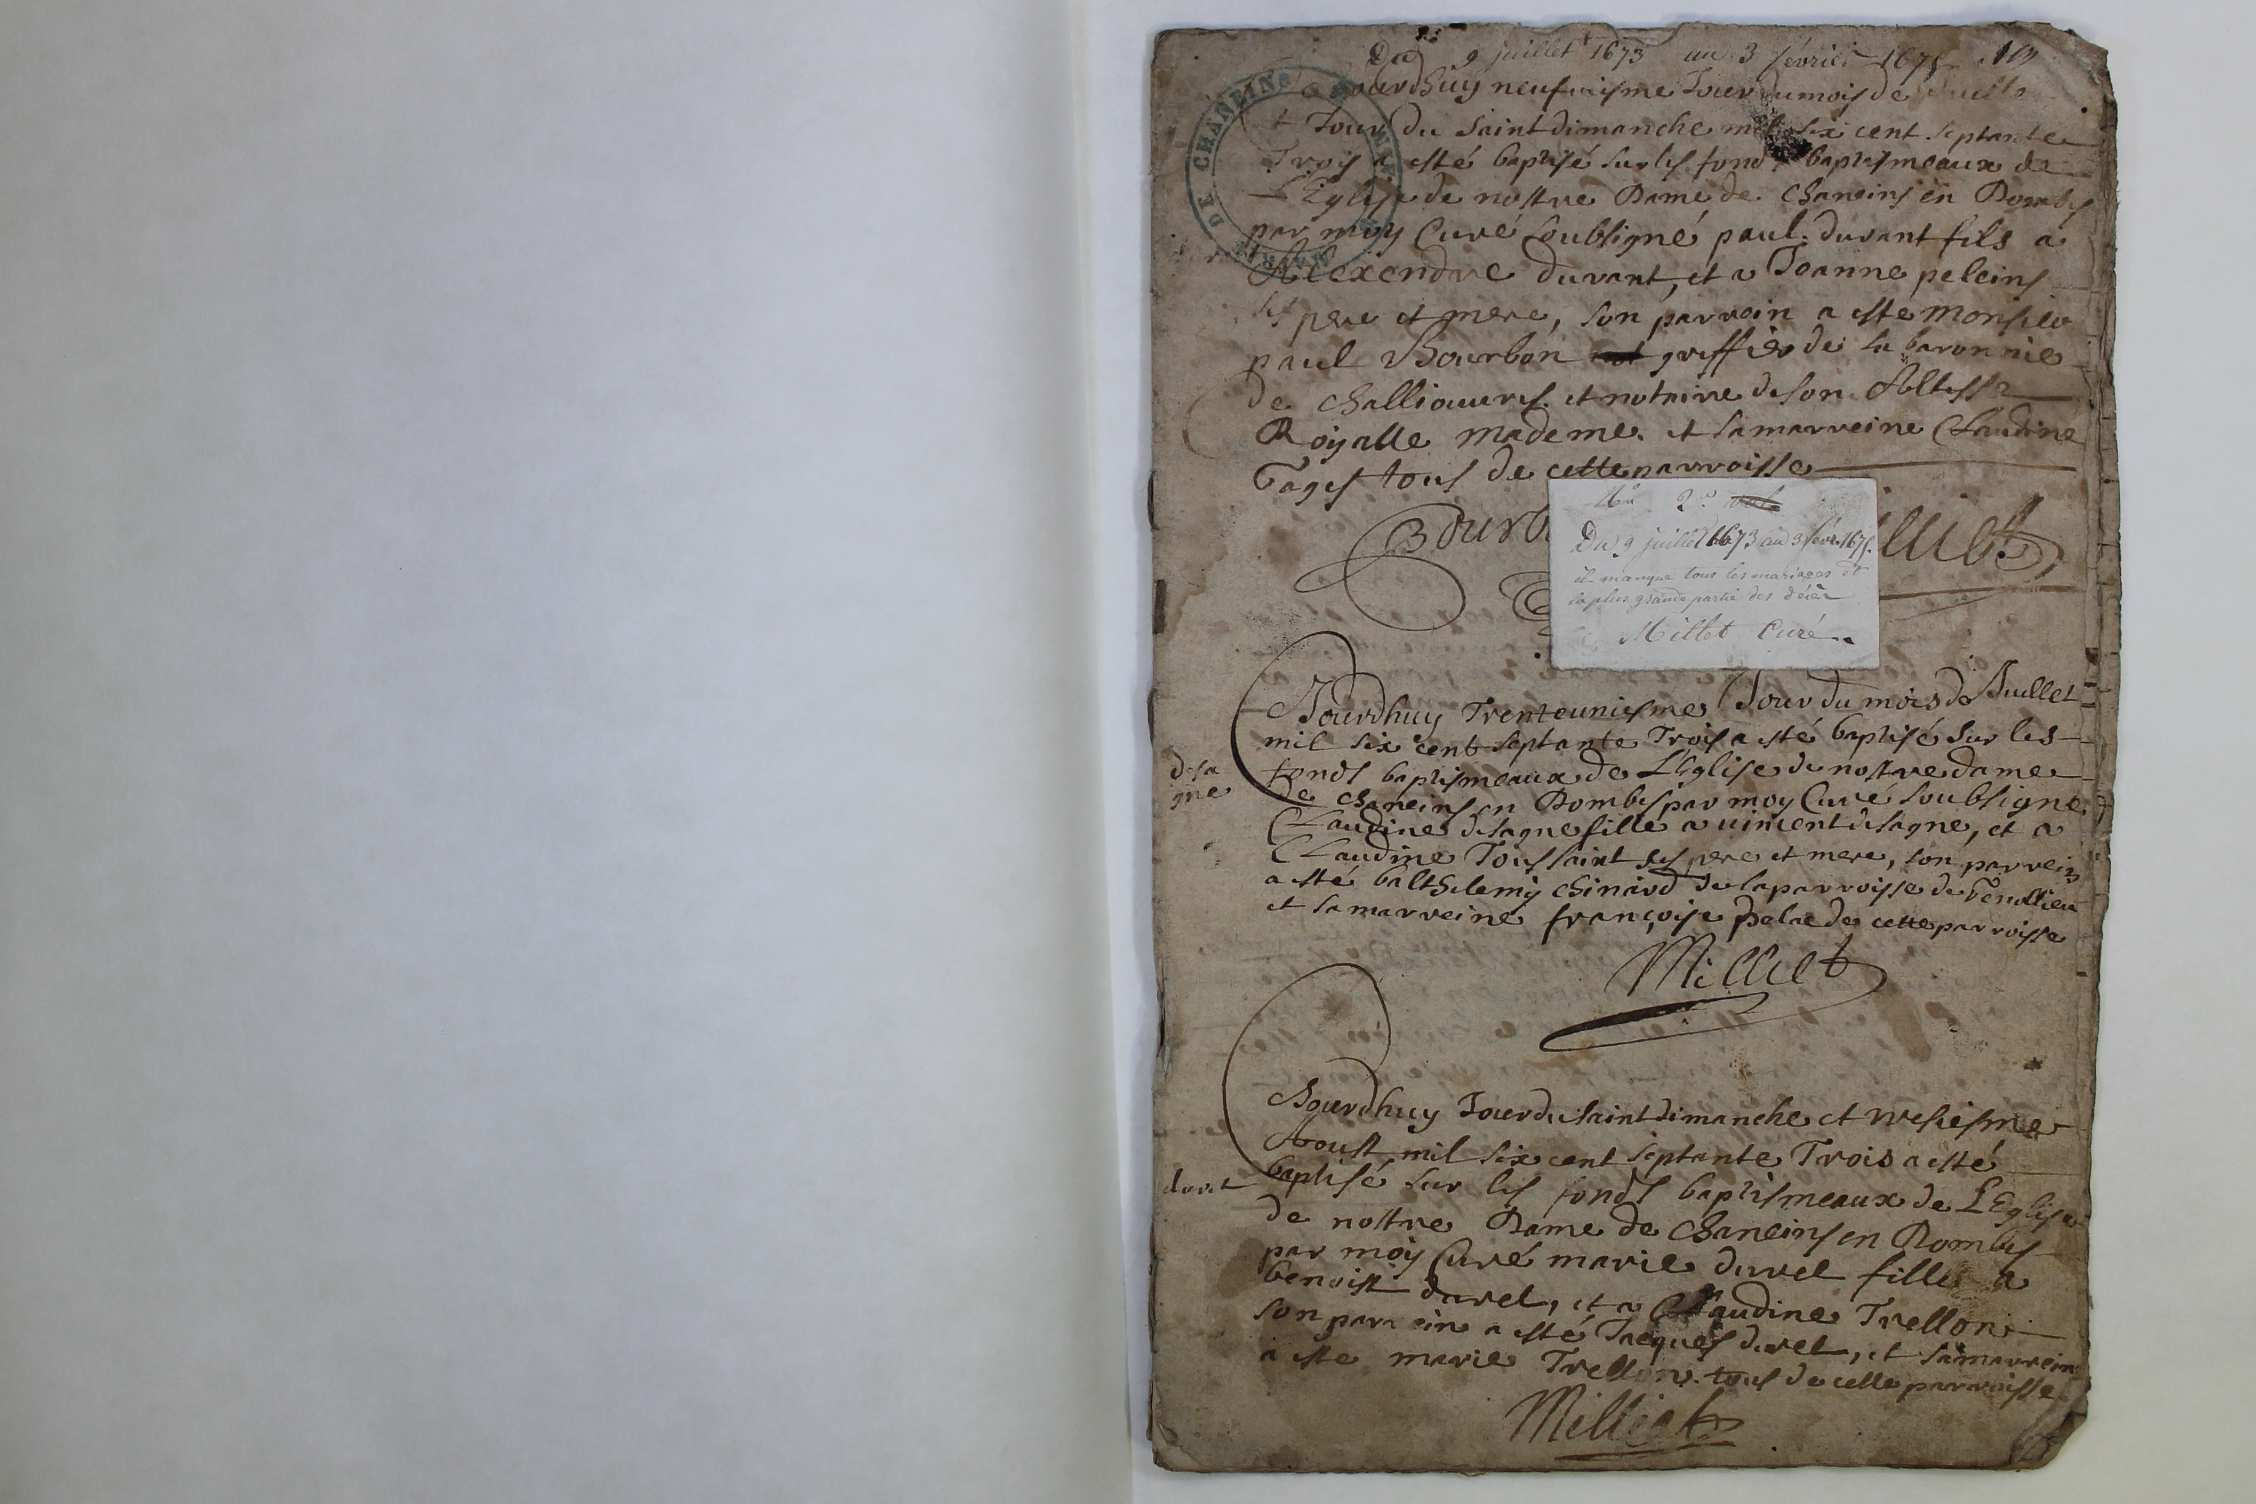 Du 9 juillet 1673 au 3 février 1675
jourdhuy neufuiesme Jour du mois de Juillet
et Jour du Saint dimanche mil six cent septante
Trois a esté baptisé sur les fonds baptismeaux de
L'Eglise de nostre Dame de Chaneins en Dombes
par moy Curé soubsigné paul durant fils a
Alexendre durant, et a Joanne peleins
ses pere et mere, son parroin a este Monsieur
paul Bourbon greffier de la baronnie
de Challiouvres et notaire de son Altesse
Royalle mademe. et sa marreine Claudine
Tages tous de cette parroisse
MAIRIE DE CHANEINS
2.º
Du 9 juillet 1673 au 3 févr. 1675.
il manque tous les mariages et
la plus grande partie des décès
Millet Curé
Jourdhuy Trenteuniesme Jour du mois de Juillet
mil six cent septante Trois a esté baptisé sur les
fonds baptismeaux de L'Eglise de nostre dame
de Chaneins en Dombes par moy Curé soubsigne
desa
gne
Claudine desagne fille a vincent desagne, et a
Claudine Toussaint ses pere et mere, son parrein
a esté balthelemy chinard de la parroisse de
et sa marreine françoise de cette parroisse
Milliet
Jourdhuy Jour du saint dimanche et
Aoust mil six cent septante Trois a esté
duret
baptisé sur les fonds baptismeaux de L'Eglise
de nostre Dame de Chaneins en Dombes
par moy Curé marie duret fille a
benoist duret, et a Claudine Trellon
son parrein a esté Jacques duret, et sa marreine
a este marie Trellon. tous de cette parroisse
Milliet